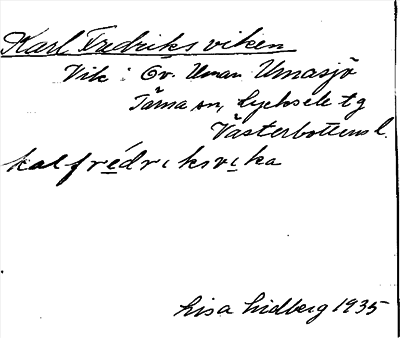 Karl Fredriks viken
Vik i Öv. Uman Umasjö
Tärna sn, Lycksele tg
Västerbottens l.
kalfrédriksvika
Lisa Lidberg 1935